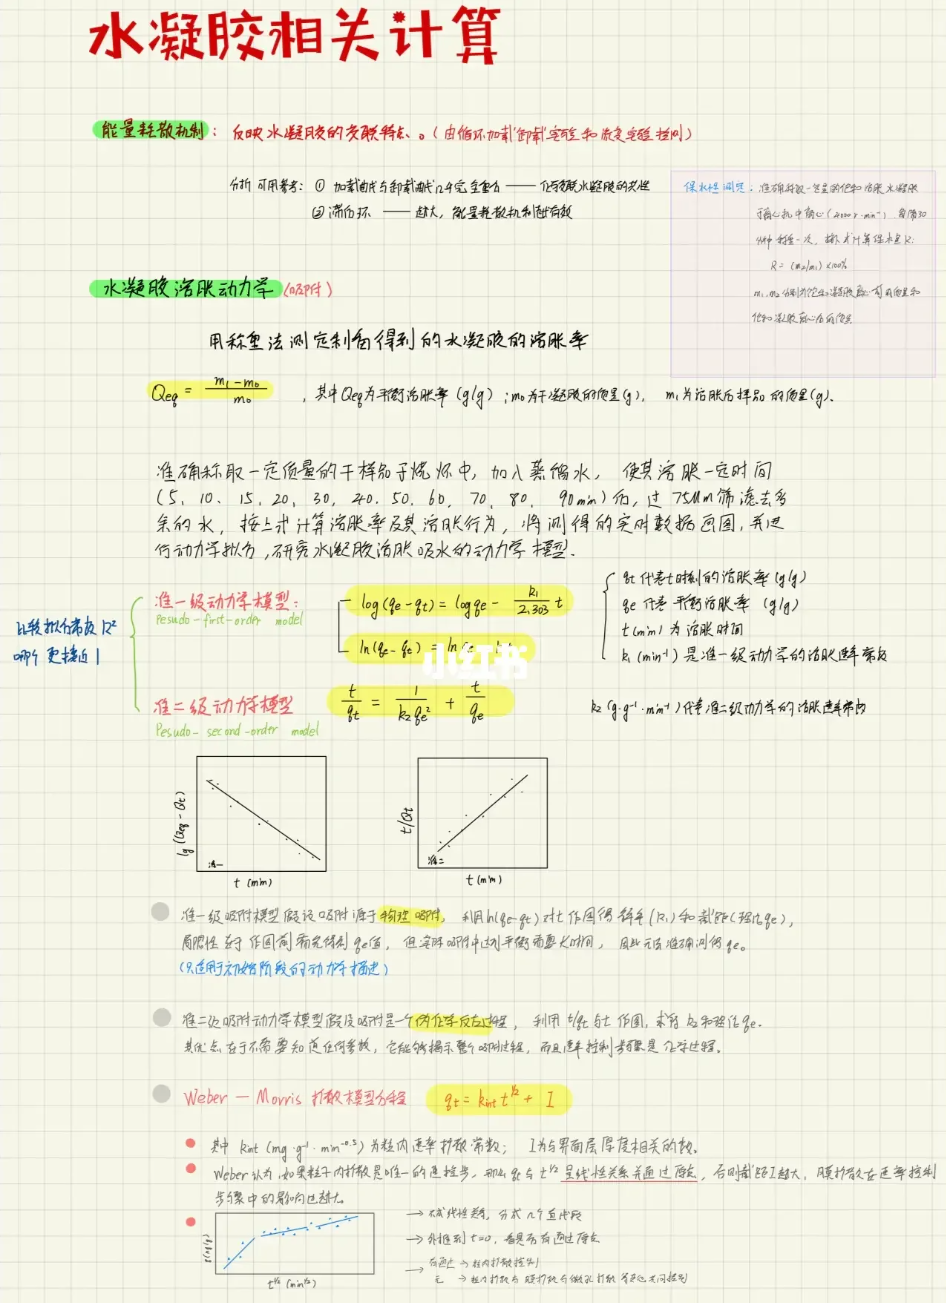 水凝胶相关计算
能量耗散机制: 反映水凝胶的交联特点。(由循环加载卸载实验和恢复实验检测)
分析可参考: ① 加载曲线与卸载曲线几乎完全重合 —— 化学交联水凝胶的弹性
② 滞后环 —— 越大, 能量耗散机制越有效
保水性测定: 准确称取一定量的饱和溶胀水凝胶
于离心机中离心(4000 r·min⁻¹) 每隔30
分钟称重一次, 按式计算保水率R:
R = (m₂/m₁) ×100%
m₁、m₂分别为饱和凝胶离心前的质量和
饱和凝胶离心后的质量
水凝胶溶胀动力学(吸附)
用称重法测定制备得到的水凝胶的溶胀率
Qeq = (m₁-m₀)/m₀ , 其中Qeq为平衡溶胀率 (g/g) ; m₀为干凝胶的质量(g), m₁为溶胀后样品的质量(g).
准确称取一定质量的干样品于烧杯中, 加入蒸馏水, 使其溶胀一定时间
(5、10、15、20、30、40、50、60、70、80、90min)后, 过75μm筛滤去多
余的水, 按上式计算溶胀率及其溶胀行为, 将测得的实时数据画图, 并进
行动力学拟合, 研究水凝胶溶胀吸水的动力学模型.
比较拟合常数 R²
哪个更接近1
准一级动力学模型:
Pesudo-first-order model
log(qe-qt) = logqe - k₁/2.303 t
ln(qe-qt) = ln qe - k₁t
小红书
qt代表t时刻的溶胀率(g/g)
qe代表平衡溶胀率 (g/g)
t(min)为溶胀时间
k₁(min⁻¹)是准一级动力学的溶胀速率常数
准二级动力学模型
Pesudo-second-order model
t/qt = 1/k₂qe² + t/qe
k₂(g·g⁻¹·min⁻¹)代表准二级动力学的溶胀速率常数
lg(Qeq-Qt)
准一
t (min)
t/Qt
准二
t (min)
准一级吸附模型假设吸附源于物理吸附, 利用ln(qe-qt)对t作图得斜率(k₁)和截距(理论qe),
局限性在于作图前需先得到qe值, 但实际吸附中达到平衡需要长时间, 因此无法准确测得qe。
(只适用于初始阶段的动力学描述)
准二级吸附动力学模型假设吸附是一个伪化学反应过程, 利用t/qt与t作图, 求得k₂和理论qe.
其优点在于不需要知道任何参数, 它能够揭示整个吸附过程, 而且速率控制步骤是化学过程。
Weber — Morris 扩散模型方程 qt = kint t^1/2 + I
其中 kint (mg·g⁻¹·min⁻⁰·⁵)为粒内速率扩散常数; I为与界面层厚度相关的数。
Weber认为,如果粒子内扩散是唯一的速控步,那么qt与t^1/2呈线性关系并通过原点, 否则截距I越大, 膜扩散在速率控制
步骤中的影响也越大。
t (mg/g)
t^1/2 (min^1/2)
→ 不成线性关系, 分成几个直线段
→ 外推到t=0, 看是否有通过原点